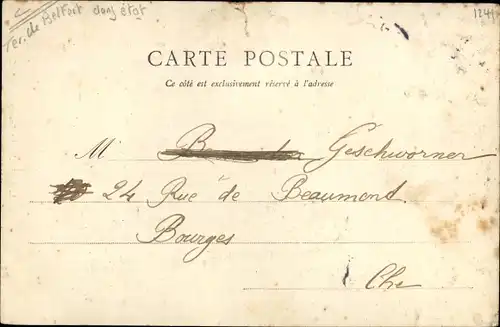 Ter. de Belfort dans état
1241
CARTE POSTALE
Ce côté est exclusivement réservé à l'adresse
M Geschworner
24 Rue de Beaumont
Bourges
Cher